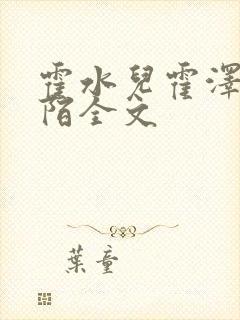 霍水兒霍澤
陌全文
葉童